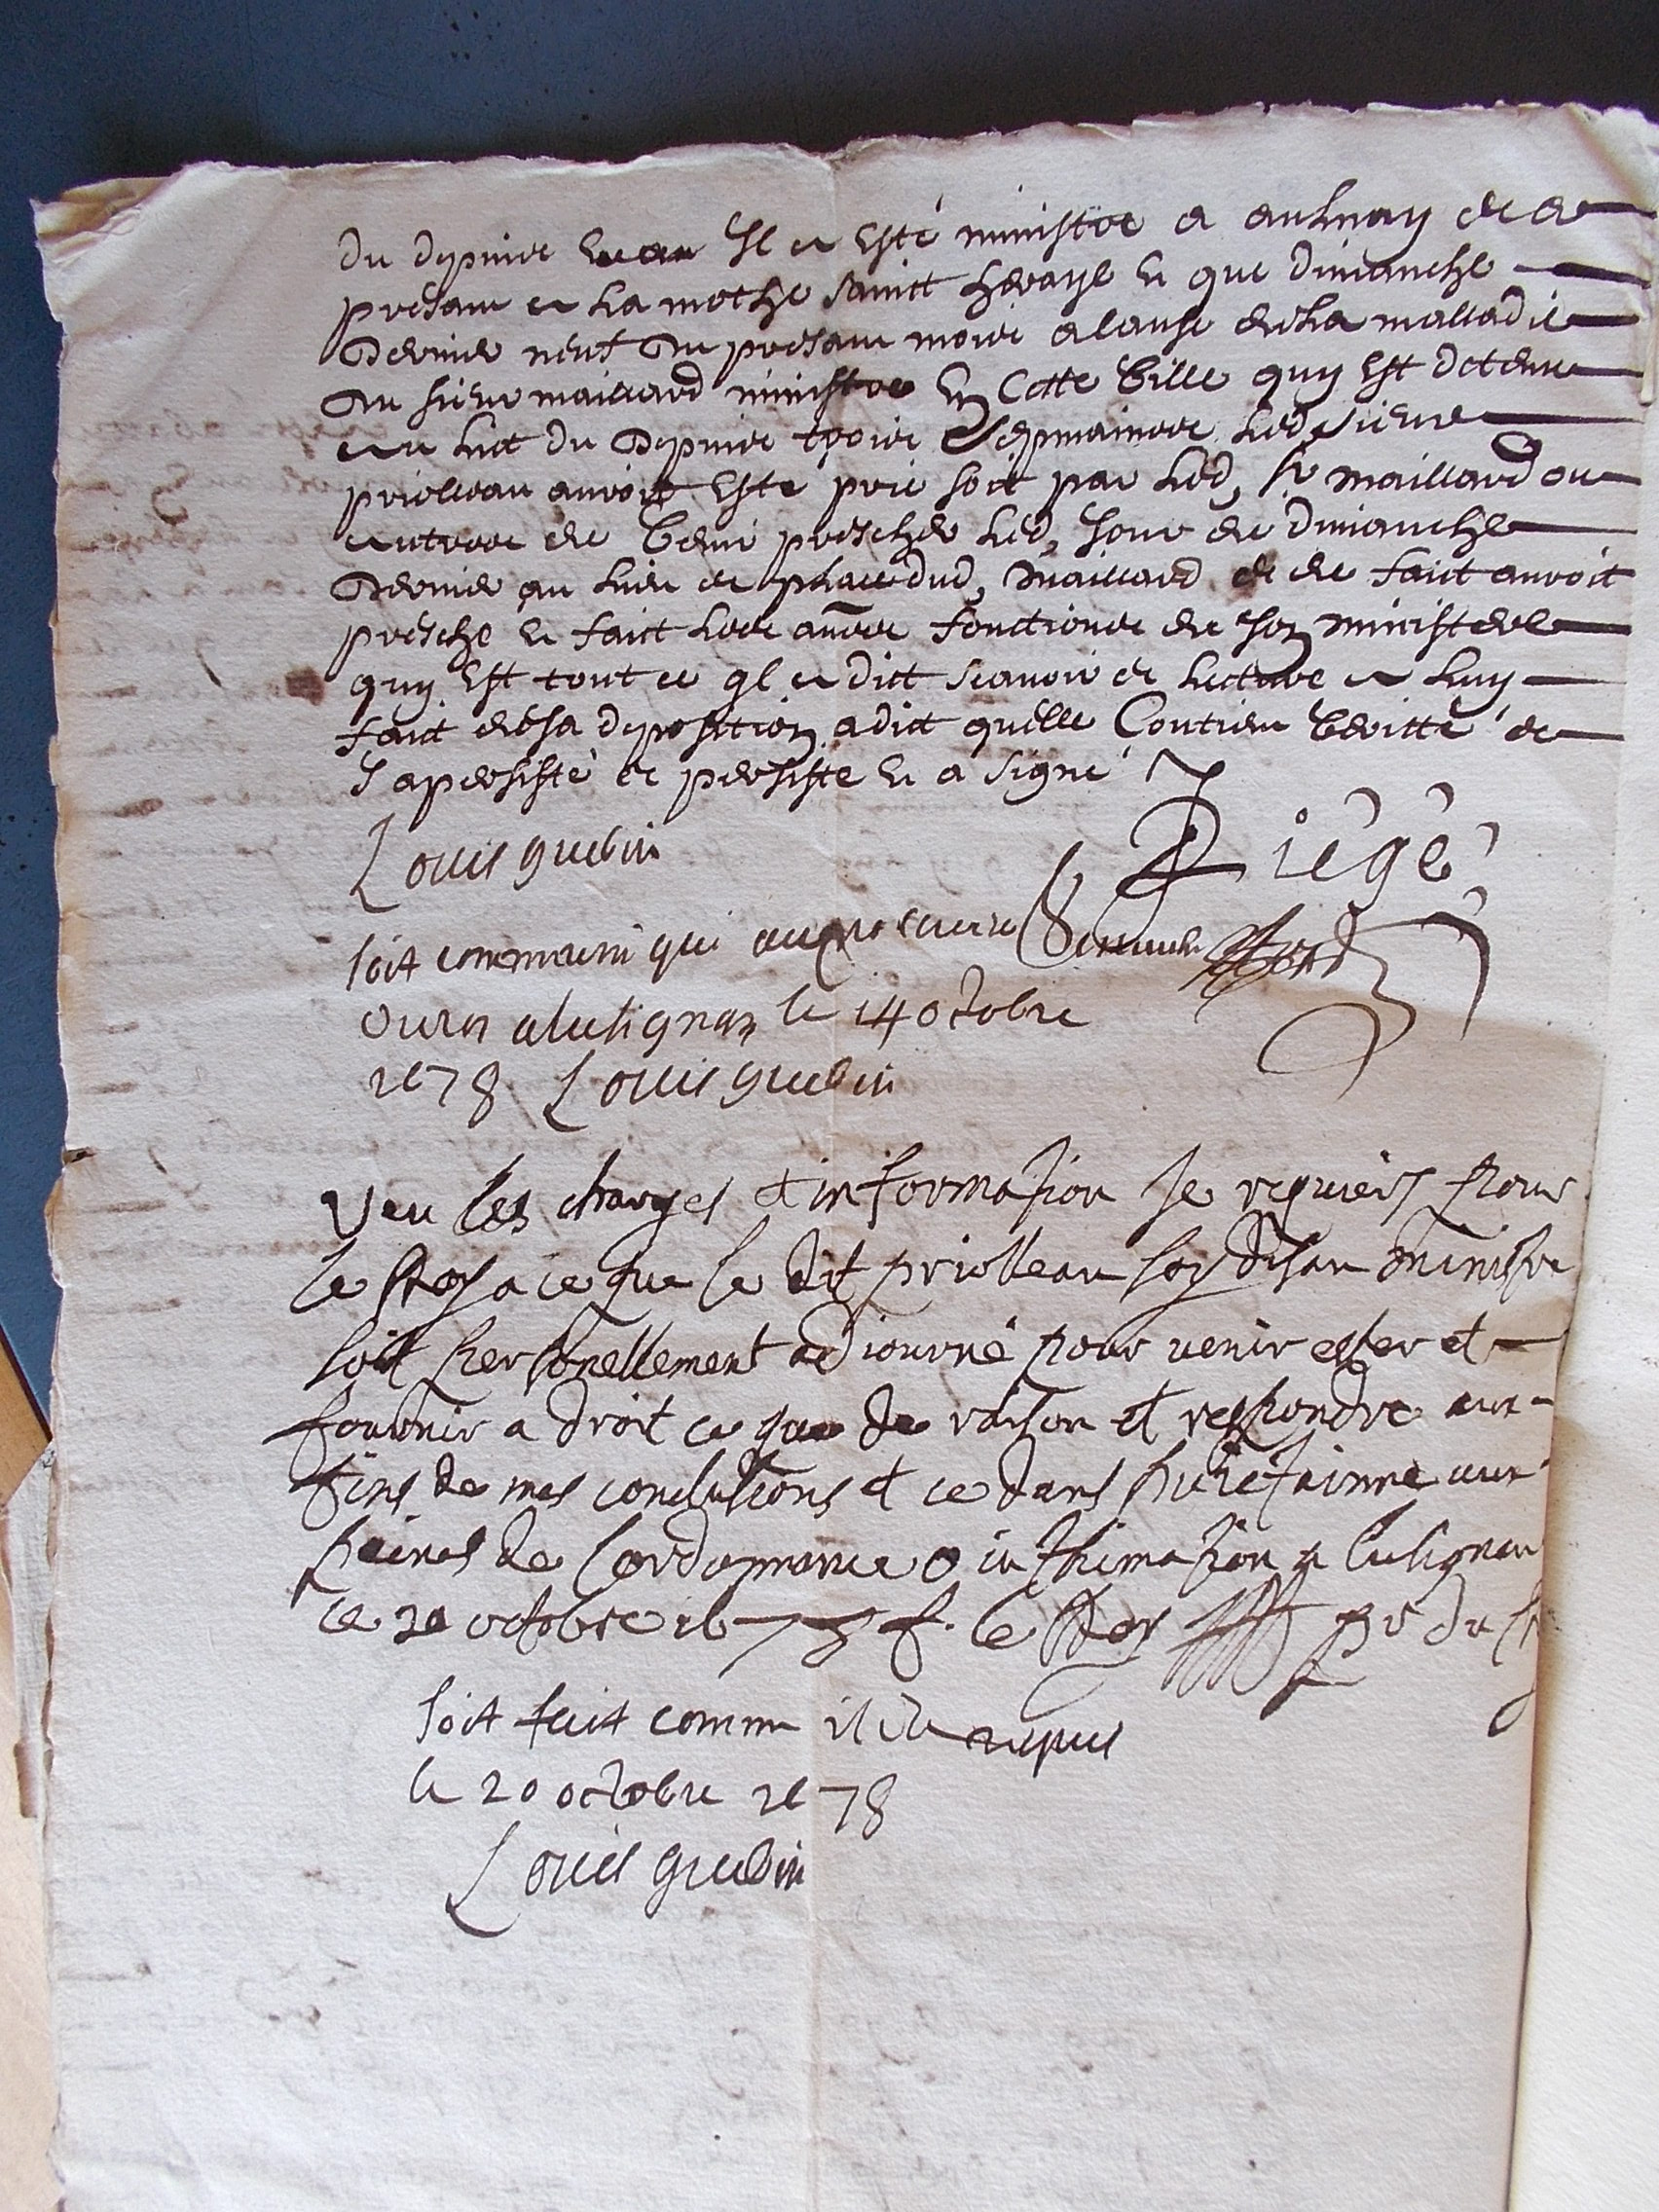 du depuis il a esté ministre a aulnay et a
présant a la mothe sainct heraye et que dimanche
dernier neuf du présant mois a cause de la malladie
du sieur maillard ministre en cette ville quy est detenu
au lict du depuis trois sepmaines led sieur
priolleau auroit esté prié soit par led, sr maillard ou
autres de venir prescher led, jour de dimanche
dernier au lieu et place dud, maillard et de faict auroit
presché et faict les autres fonctions de son ministere
quy est tout ce ql a dict scavoir et lecture a luy
faict de sa deposition a dict quelle contient veritté et
y a persisté et persiste et a signé
Louis guebin
Diégé
soit communiqué au procureur
du roi a lusignan le 14 octobre
1678 Louis guebin
Veu les charges et information je requiers pour
le Roy a ce que le dit priolleau soy disan ministre
soit personellement adiourné pour venir ester et
fournir a droit ce que de raison et respondre aux
fins de mes conclusions et ce dans huictainne aux
peines de lordonnance o inthimation a lusignan
ce 20 octobre 1678 f. le Roy pr du
soit fait comme il est requis
le 20 octobre 1678
Louis guebin